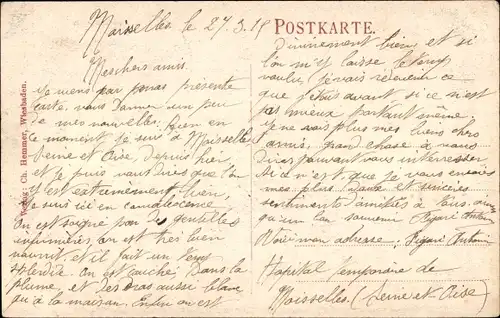 Moisselles le 27.3.19
POSTKARTE.
Mes chers amis.
Je viens par
présente
carte, vous donner un peu
de mes nouvelles. Bien en
ce moment je suis à Moisselles
Seine et Oise, depuis hier
et je puis vous dire que l'on
y est extrêmement bien,
Je suis ici en convalescence
On est soigné par de gentilles
infirmières, on est très bien
nourrit et il fait un temps
splendide. On est couché, dans la
plume, et des draps aussi blanc
qu'à la maison. Enfin on est
divinement bien, et si
l'on m'y laisse le temps
voulu, j'e vais redevenir ce
que j'étais avant si ce n'est
pas mieux portant même
Je ne vois plus mes biens chers
amis, grand chose à vous
dire pouvant vous interresser
Si ce n'est que je vous envoies
mes plus et sincères
sentiments d'amitiés à tous.
qu'un bon souvenir
Voici mon adresse:
Hôpital Temporaire de
Moisselles. (Seine-et-Oise)
Verlag: Ch. Hemmer, Wiesbaden.